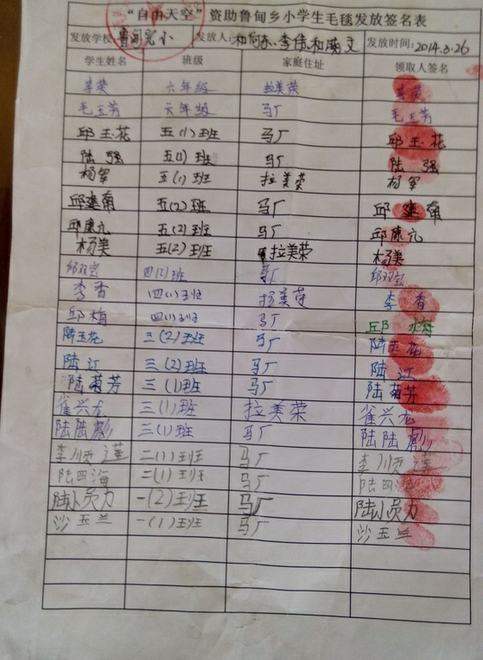 “自由天空”资助鲁甸乡小学生毛毯发放签名表
发放学校：鲁甸完小 发放人： 发放时间：2014.3.26
学生姓名 班级 家庭住址 领取人签名
李荣 六年级 拉美荣 李荣
毛玉芳 六年级 马厂 毛玉芳
邱玉花 五(1)班 马厂 邱玉花
陆强 五(1)班 马厂 陆强
杨军 五(1)班 拉美荣 杨军
邱建南 五(2)班 马厂 邱建南
邱康元 五(2)班 马厂 邱康元
杨美 五(2)班 拉美荣 杨美
邱双宝 四(2)班 马厂 邱双宝
李香 四(1)班 拉美荣 李香
邱梅 四(1)班 马厂 邱梅
陆玉花 三(2)班 马厂 陆玉花
陆江 三(2)班 马厂 陆江
陆菊芳 三(1)班 马厂 陆菊芳
雀兴龙 三(1)班 拉美荣 雀兴龙
陆陆 三(1)班 马厂 陆陆
李顺莲 二(1)班 马厂 李顺莲
陆四海 二(1)班 马厂 陆四海
陆小员力 一(2)班 马厂 陆小员力
沙玉兰 一(1)班 马厂 沙玉兰